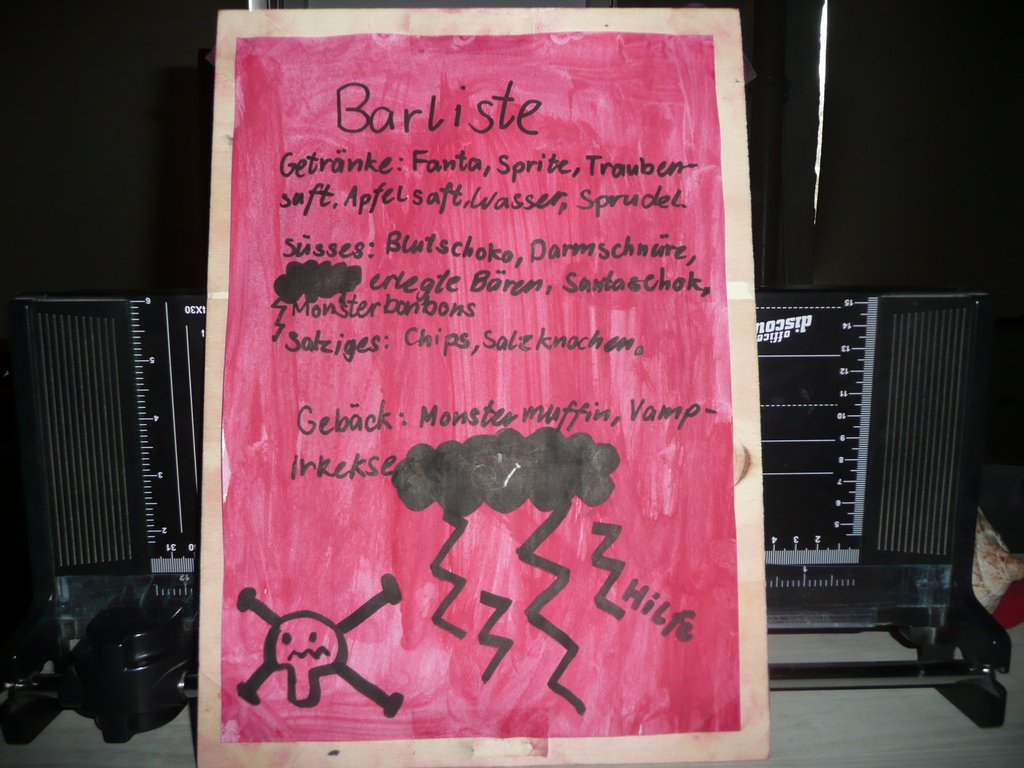 Barliste
Getränke: Fanta, Sprite, Trauben-
saft, Apfelsaft, Wasser, Sprudel.
Süsses: Blutschoko, Darmschnüre,
erlegte Bären, Santaschok,
Monsterbonbons
Salziges: Chips, Salzknochen.
Gebäck: Monstermuffin, Vamp-
irkekse
Hilfe
office
discount